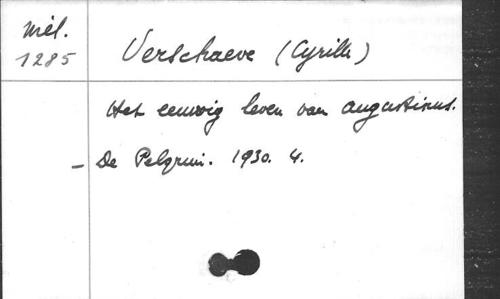 Mél.
1285
Verschaeve (Cyrille)
Het eeuwig leven van Augustinus.
– De Pelgrim. 1930. 4.